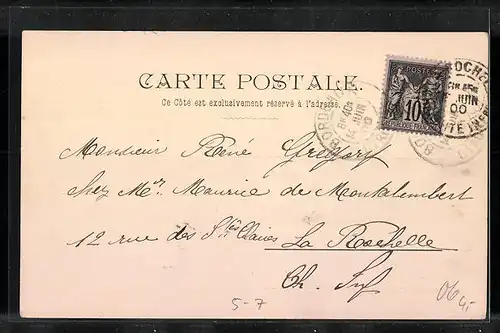 CARTE POSTALE.
Ce Côté est exclusivement réservé à l'adresse.
10
JUIN
00
Monsieur René Gregory
Chez Mr Maurice de Montalembert
12 rue des Stes Claires La Rochelle
Ch. Inf
5-7